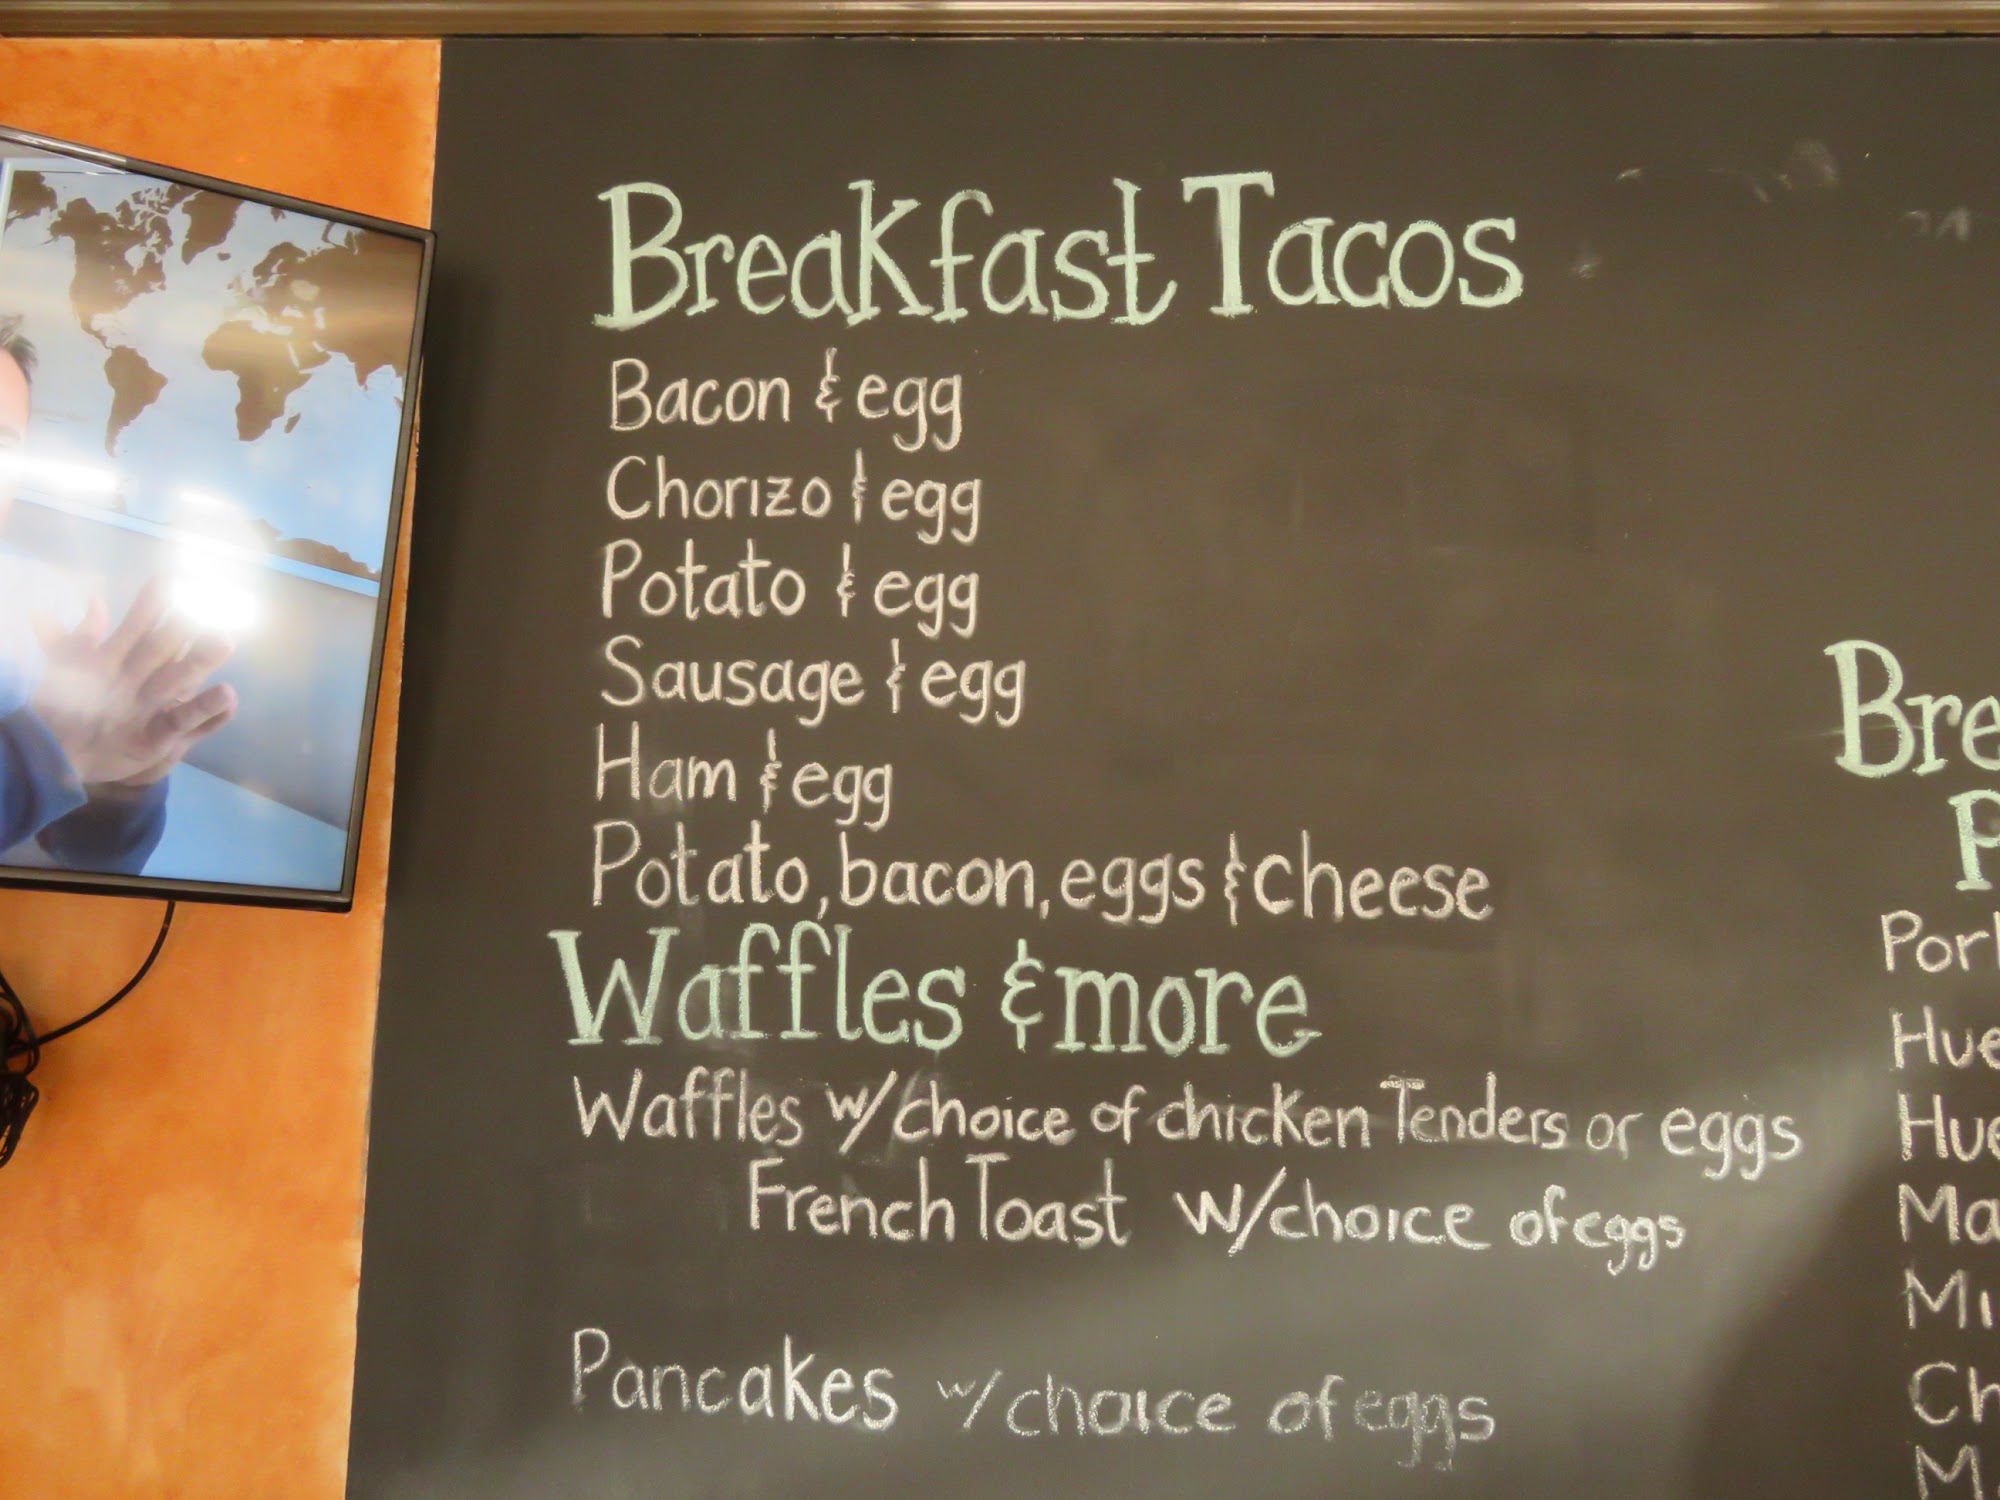 Breakfast Tacos
Bacon & egg
Chorizo & egg
Potato & egg
Sausage & egg
Ham & egg
Potato, bacon, eggs & cheese
Waffles & more
Waffles w/choice of chicken Tenders or eggs
French Toast w/choice of eggs
Pancakes w/choice of eggs
Bre
P
Por
Hue
Hue
Ma
Mi
Ch
M